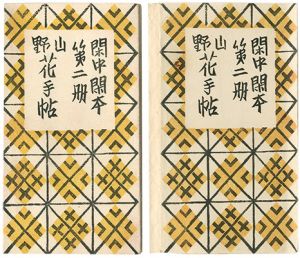 閑中閑本
第二册
山
野花手帖
閑中閑本
第二册
山
野花手帖